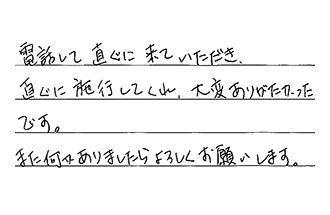 電話して直ぐに来ていただき、
直ぐに施行してくれ、大変ありがたかった
です。
また何かありましたらよろしくお願いします。